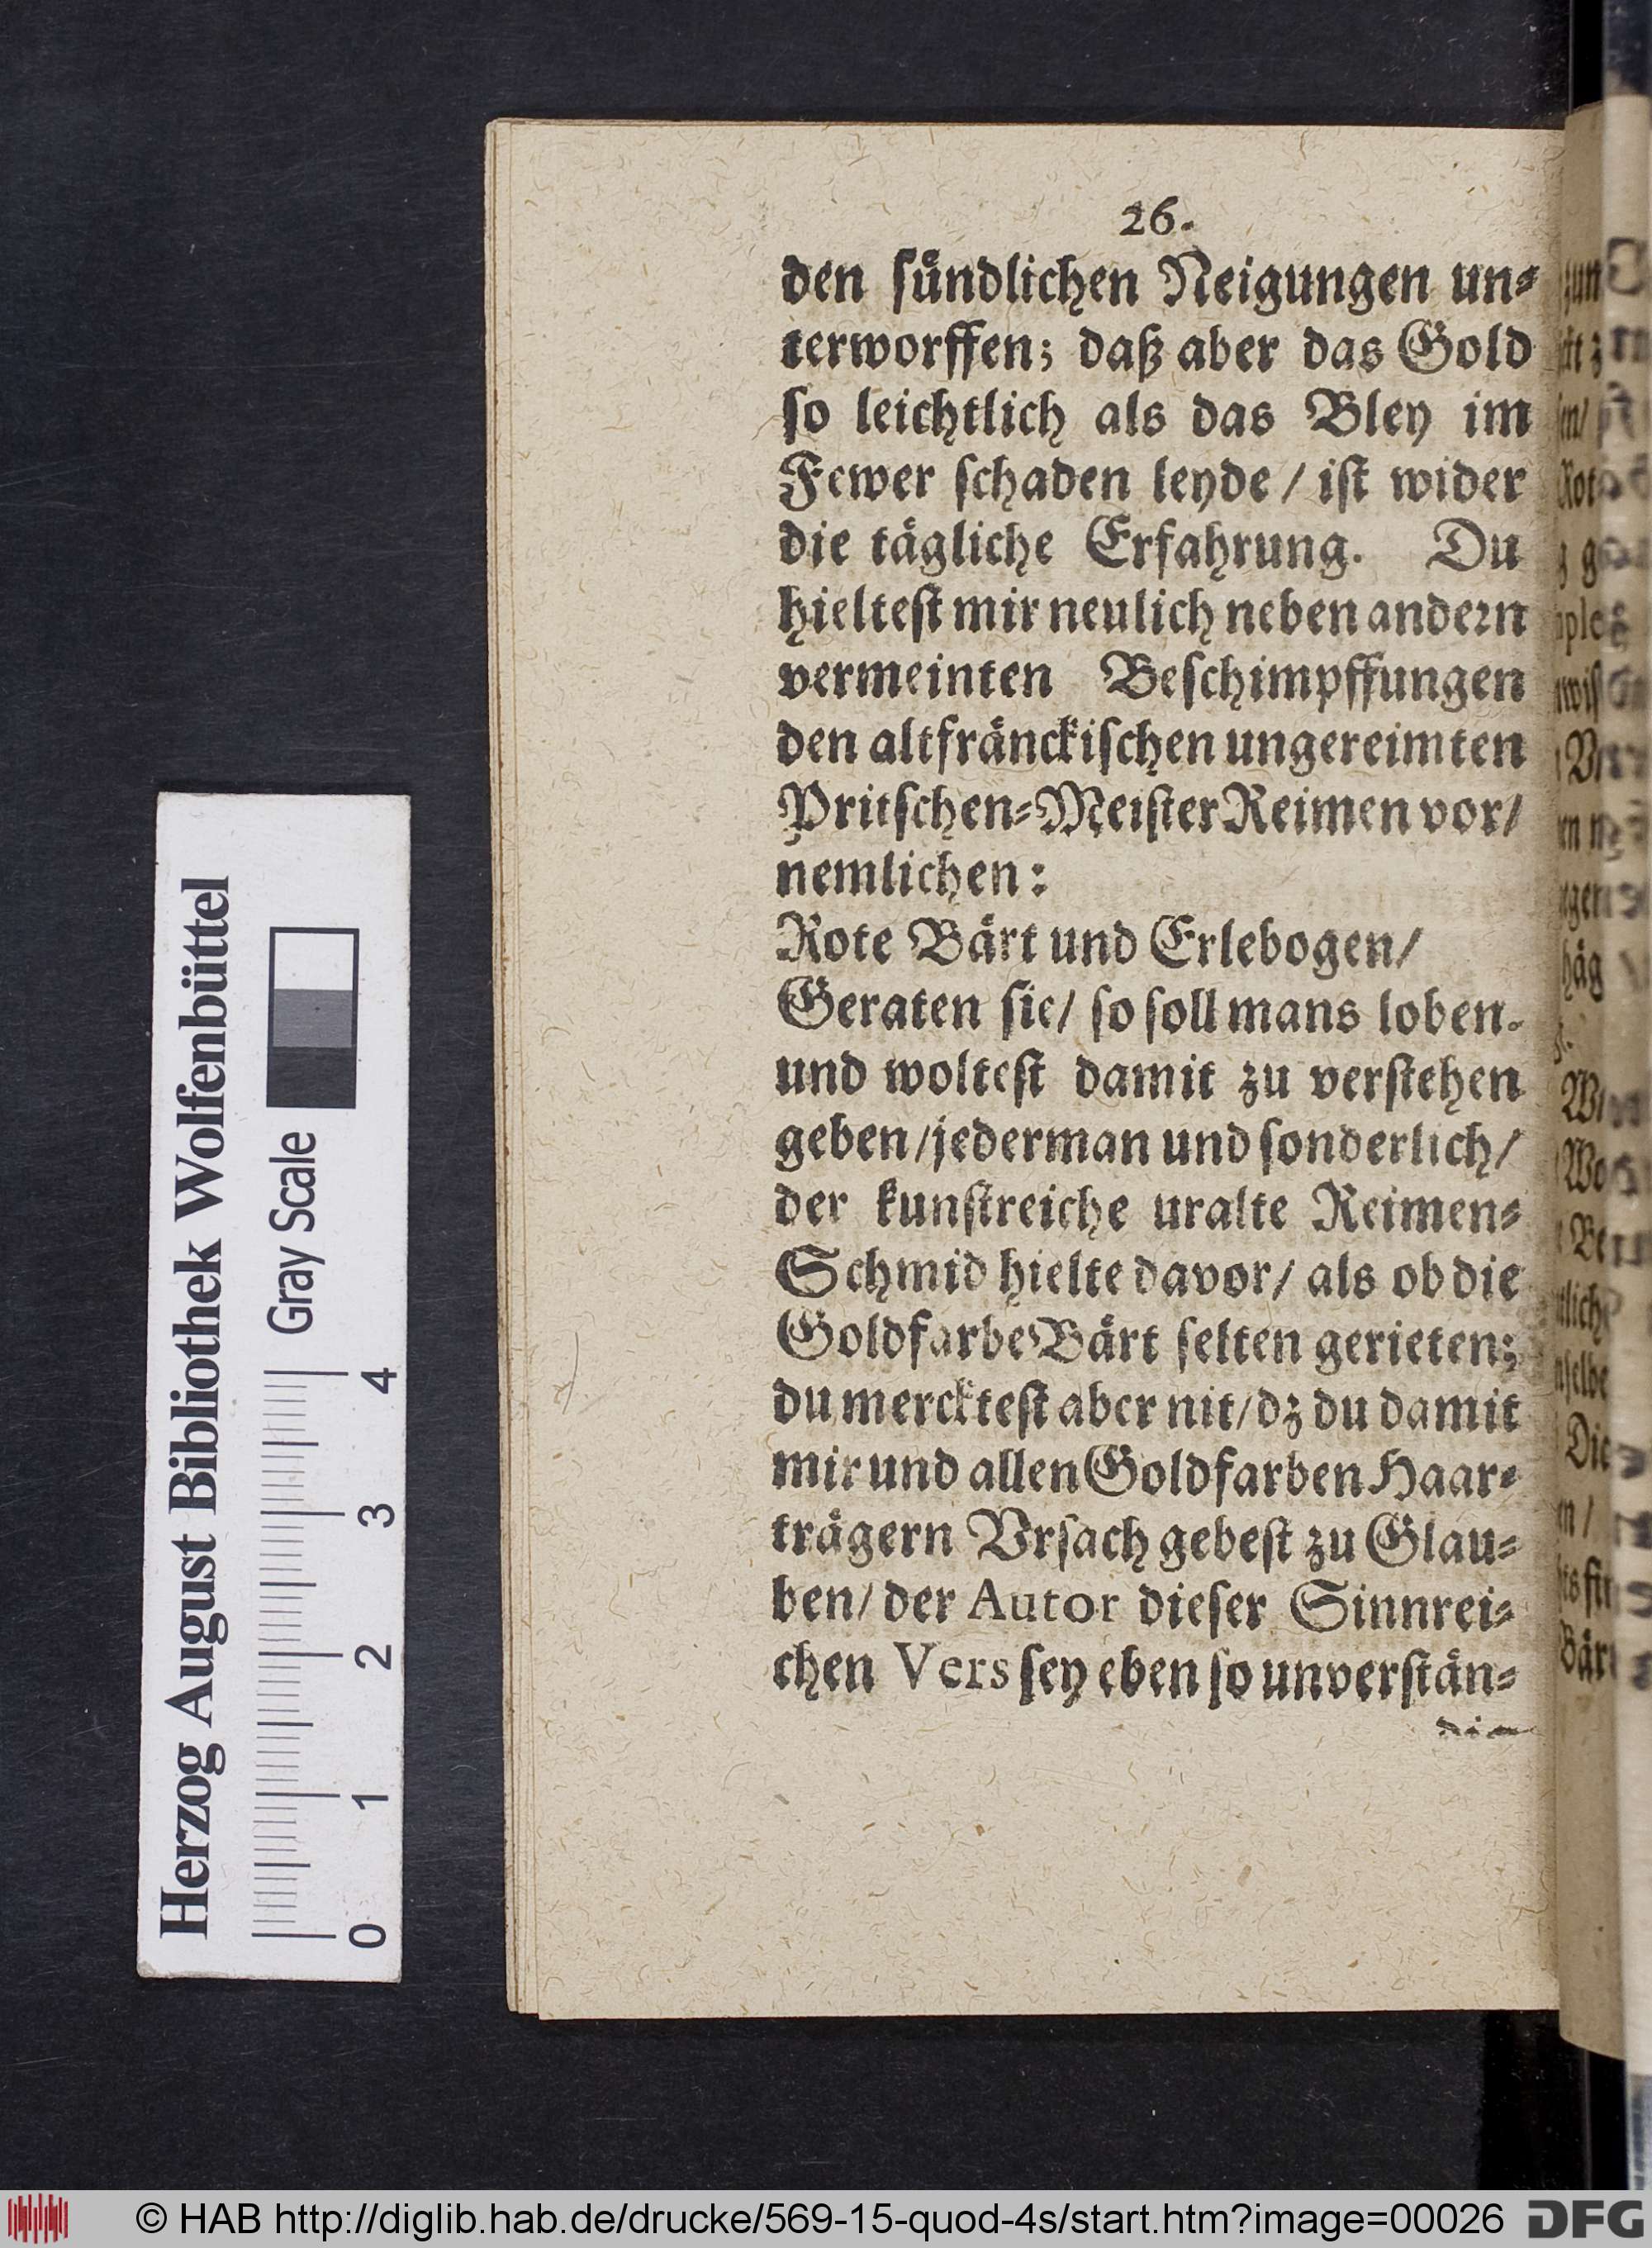 26.
den ſuͤndlichen Neigungen un⸗
terworffen; daß aber das Gold
ſo leichtlich als das Bley im
Fewer ſchaden leyde / iſt wider
die taͤgliche Erfahrung. Du
hielteſt mir neulich neben andern
vermeinten Beſchimpffungen
den altfraͤnckiſchen ungereimten
Pritſchen⸗Meiſter Reimen vor/
nemlichen:
Rote Baͤrt und Erlebogen/
Geraten ſie/ ſo ſoll mans loben.
und wolteſt damit zu verſtehen
geben/jederman und ſonderlich/
der kunſtreiche uralte Reimen⸗
Schmid hielte davor/ als ob die
Goldfarbe Baͤrt ſelten gerieten;
du merckteſt aber nit/dz du damit
mir und allen Goldfarben Haar⸗
traͤgern Vrſach gebeſt zu Glau⸗
ben/ der Autor dieſer Sinnrei⸗
chen Vers ſey eben ſo unverſtaͤn⸗
Herzog August Bibliothek Wolfenbüttel
Gray Scale
0 1 2 3 4
© HAB http://diglib.hab.de/drucke/569-15-quod-4s/start.htm?image=00026
DFG